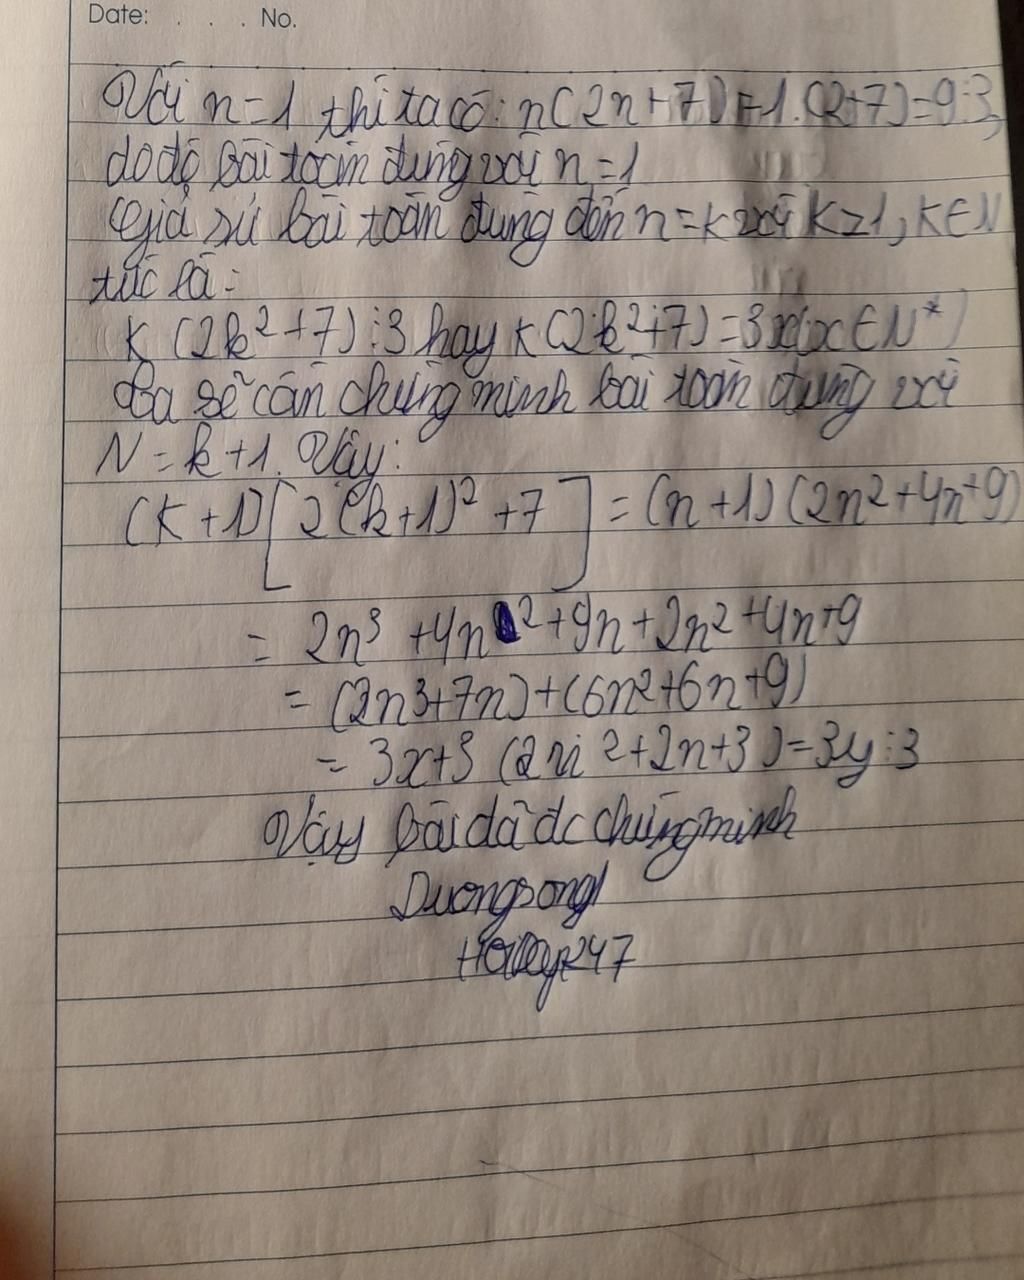 Date: . . . No.
Với n=1 thì ta có: n(2n+7)=1.(2+7)=9⋮3,
do đó bài toán đúng với n=1
Giả sử bài toán đúng đến n=k với k≥1, k∈N
tức là:
k(2k²+7)⋮3 hay k(2k²+7)=3x(x∈N*)
Ta sẽ cần chứng minh bài toán đúng với
N=k+1. Vậy:
(k+1)[2(k+1)²+7]=(n+1)(2n²+4n+9)
= 2n³+4n²+9n+2n²+4n+9
= (2n3+7n)+(6n²+6n+9)
= 3x+3(2n²+2n+3)=3y⋮3
Vậy bài đã đc chứng minh
Duongsong1